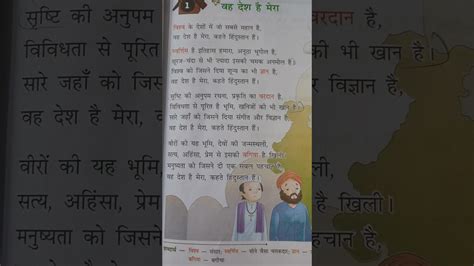 1
वह देश है मेरा
विश्व के देशों में जो सबसे महान है,
वह देश है मेरा, कहते हिंदुस्तान हैं।
स्वर्णिम है इतिहास हमारा, अनूठा भूगोल है,
सूरज-चंदा से भी ज्यादा इसकी चमक अनमोल है।
विश्व को जिसने दिया शून्य का भी ज्ञान है,
वह देश है मेरा, कहते हिंदुस्तान हैं।
सृष्टि की अनुपम रचना, प्रकृति का वरदान है,
विविधता से पूरित है भूमि, खनिजों की भी खान है।
सारे जहाँ को जिसने दिया संगीत और विज्ञान है,
वह देश है मेरा, कहते हिंदुस्तान हैं।
वीरों की यह भूमि, देवों की जन्मस्थली,
सत्य, अहिंसा, प्रेम से इसकी बगिया है खिली।
मनुष्यता को जिसने दी एक सफल पहचान है,
वह देश है मेरा, कहते हिंदुस्तान हैं।
शब्दार्थ – विश्व – संसार; स्वर्णिम – सोने जैसा चमकदार; ज्ञान –
बगिया – बगीचा
सृष्टि की अनुपम
विविधता से पूरित
सारे जहाँ को जि
वह देश है मेरा,
वीरों की यह भूमि
सत्य, अहिंसा, प्रे
मनुष्यता को जिस
वरदान है,
की भी खान है।
विज्ञान है
है खिली।
हचान है,